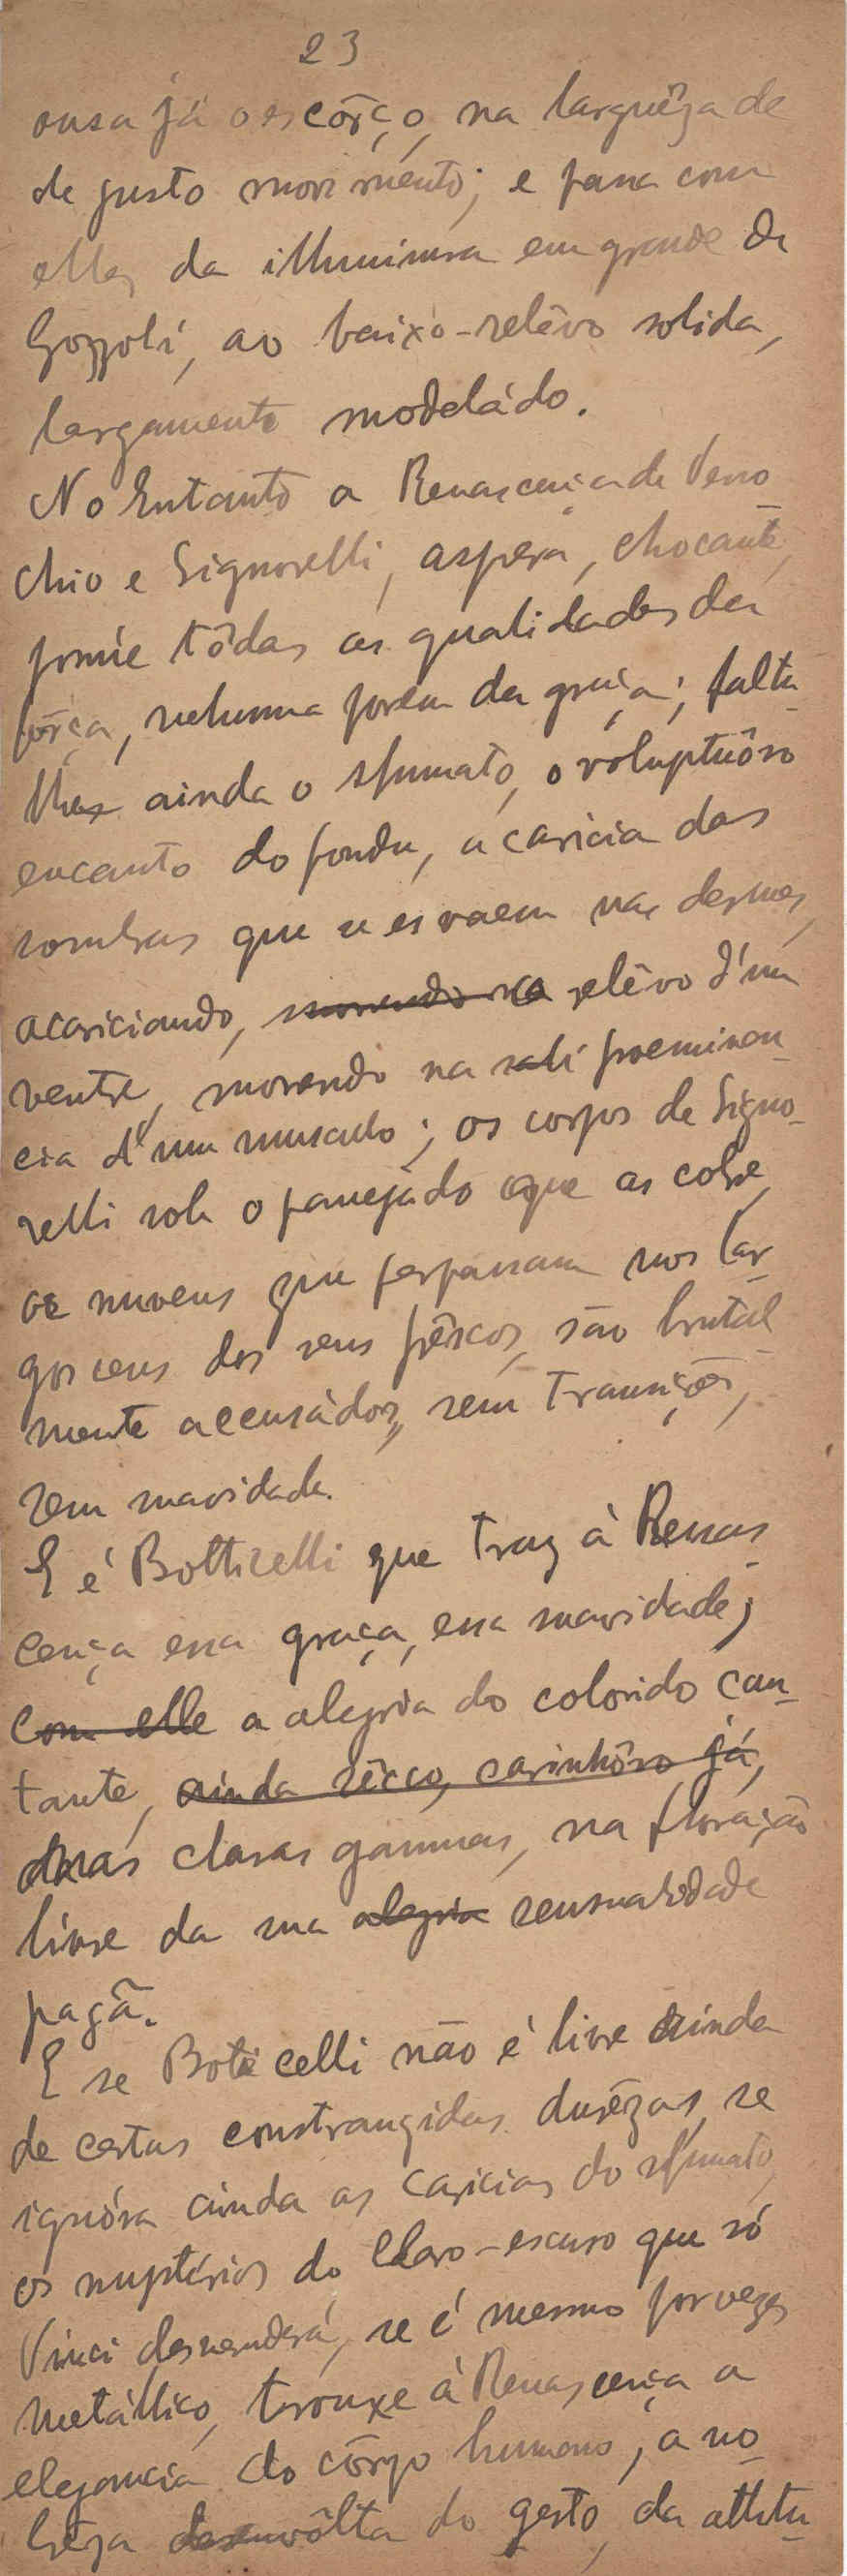 23
ousa já o escôrço, na larguêza de
de justo movimento; e passa com
elles da illuminura em grande de
Gozzoli, ao baixo-relêvo solido,
largamente modeládo.
No Entanto a Renascença de Verro
chio e Signorelli, aspera, chocante,
possúe tôdas as qualidades da
fôrça, nenhuma porém da graça; falta-
lhe ainda o sfumato, o voluptuôso
encanto do fondu, a caricia das
sombras que se esvaem nas
acariciando, morendo no relêvo d'um
ventre, morendo na preeminen-
cia d'um musculo; os corpos de Signo-
relli sob o panejádo que as cobre,
as nuvens que perpassam nos lar-
gos ceus dos seus frêscos, são brutal-
mente accusádos, sem transições,
sem suavidade.
E é Botticelli que traz à Renas-
cença essa graça, essa suavidade;
com elle a alegria do colorido can-
tante, ainda sêcco, carinhôso já,
nas claras gammas, na floração
livre da sua alegria sensualidade
pagã.
E se Boticelli não é livre ainda
de certas constrangidas durêzas, se
ignóra ainda as caricias do sfumato,
os mystérios do claro-escuro que só
Vinci desvendará, se é mesmo por vezes
metállico, trouxe à Renascença a
elegancia do côrpo humano, a no-
brêza desenvôlta do gesto, da attitu-